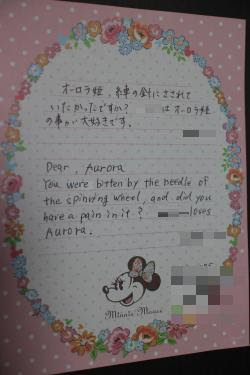 オーロラ姫、糸車の針にさされて
いたかったですか? はオーロラ姫
の事が大好きです。
Dear, Aurora
You were bitten by the needle of
the spinning wheel, and did you
have a pain in it? loves
Aurora.
Minnie Mouse